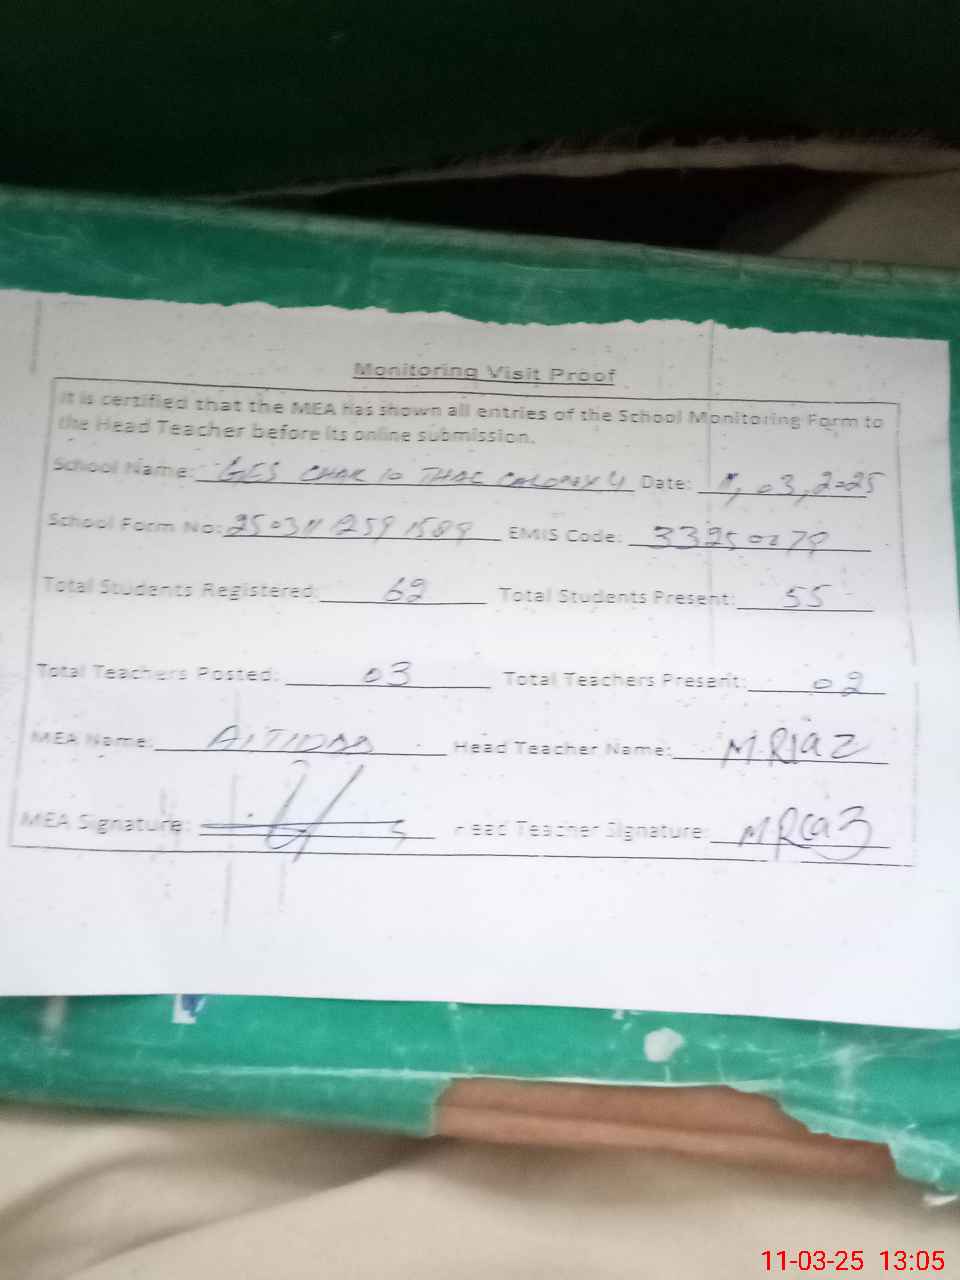 Monitoring Visit Proof
It is certified that the MEA has shown all entries of the School Monitoring Form to
the Head Teacher before its online submission.
School Name: GES CHAK 10 THAL COLONY 4 Date: 03, 2025
School Form No: EMIS Code: 33250278
Total Students Registered: 62 Total Students Present: 55
Total Teachers Posted: 03 Total Teachers Present: 02
MEA Name: Head Teacher Name: M.Riaz
MEA Signature: Head Teacher Signature: MRiaz
11-03-25 13:05